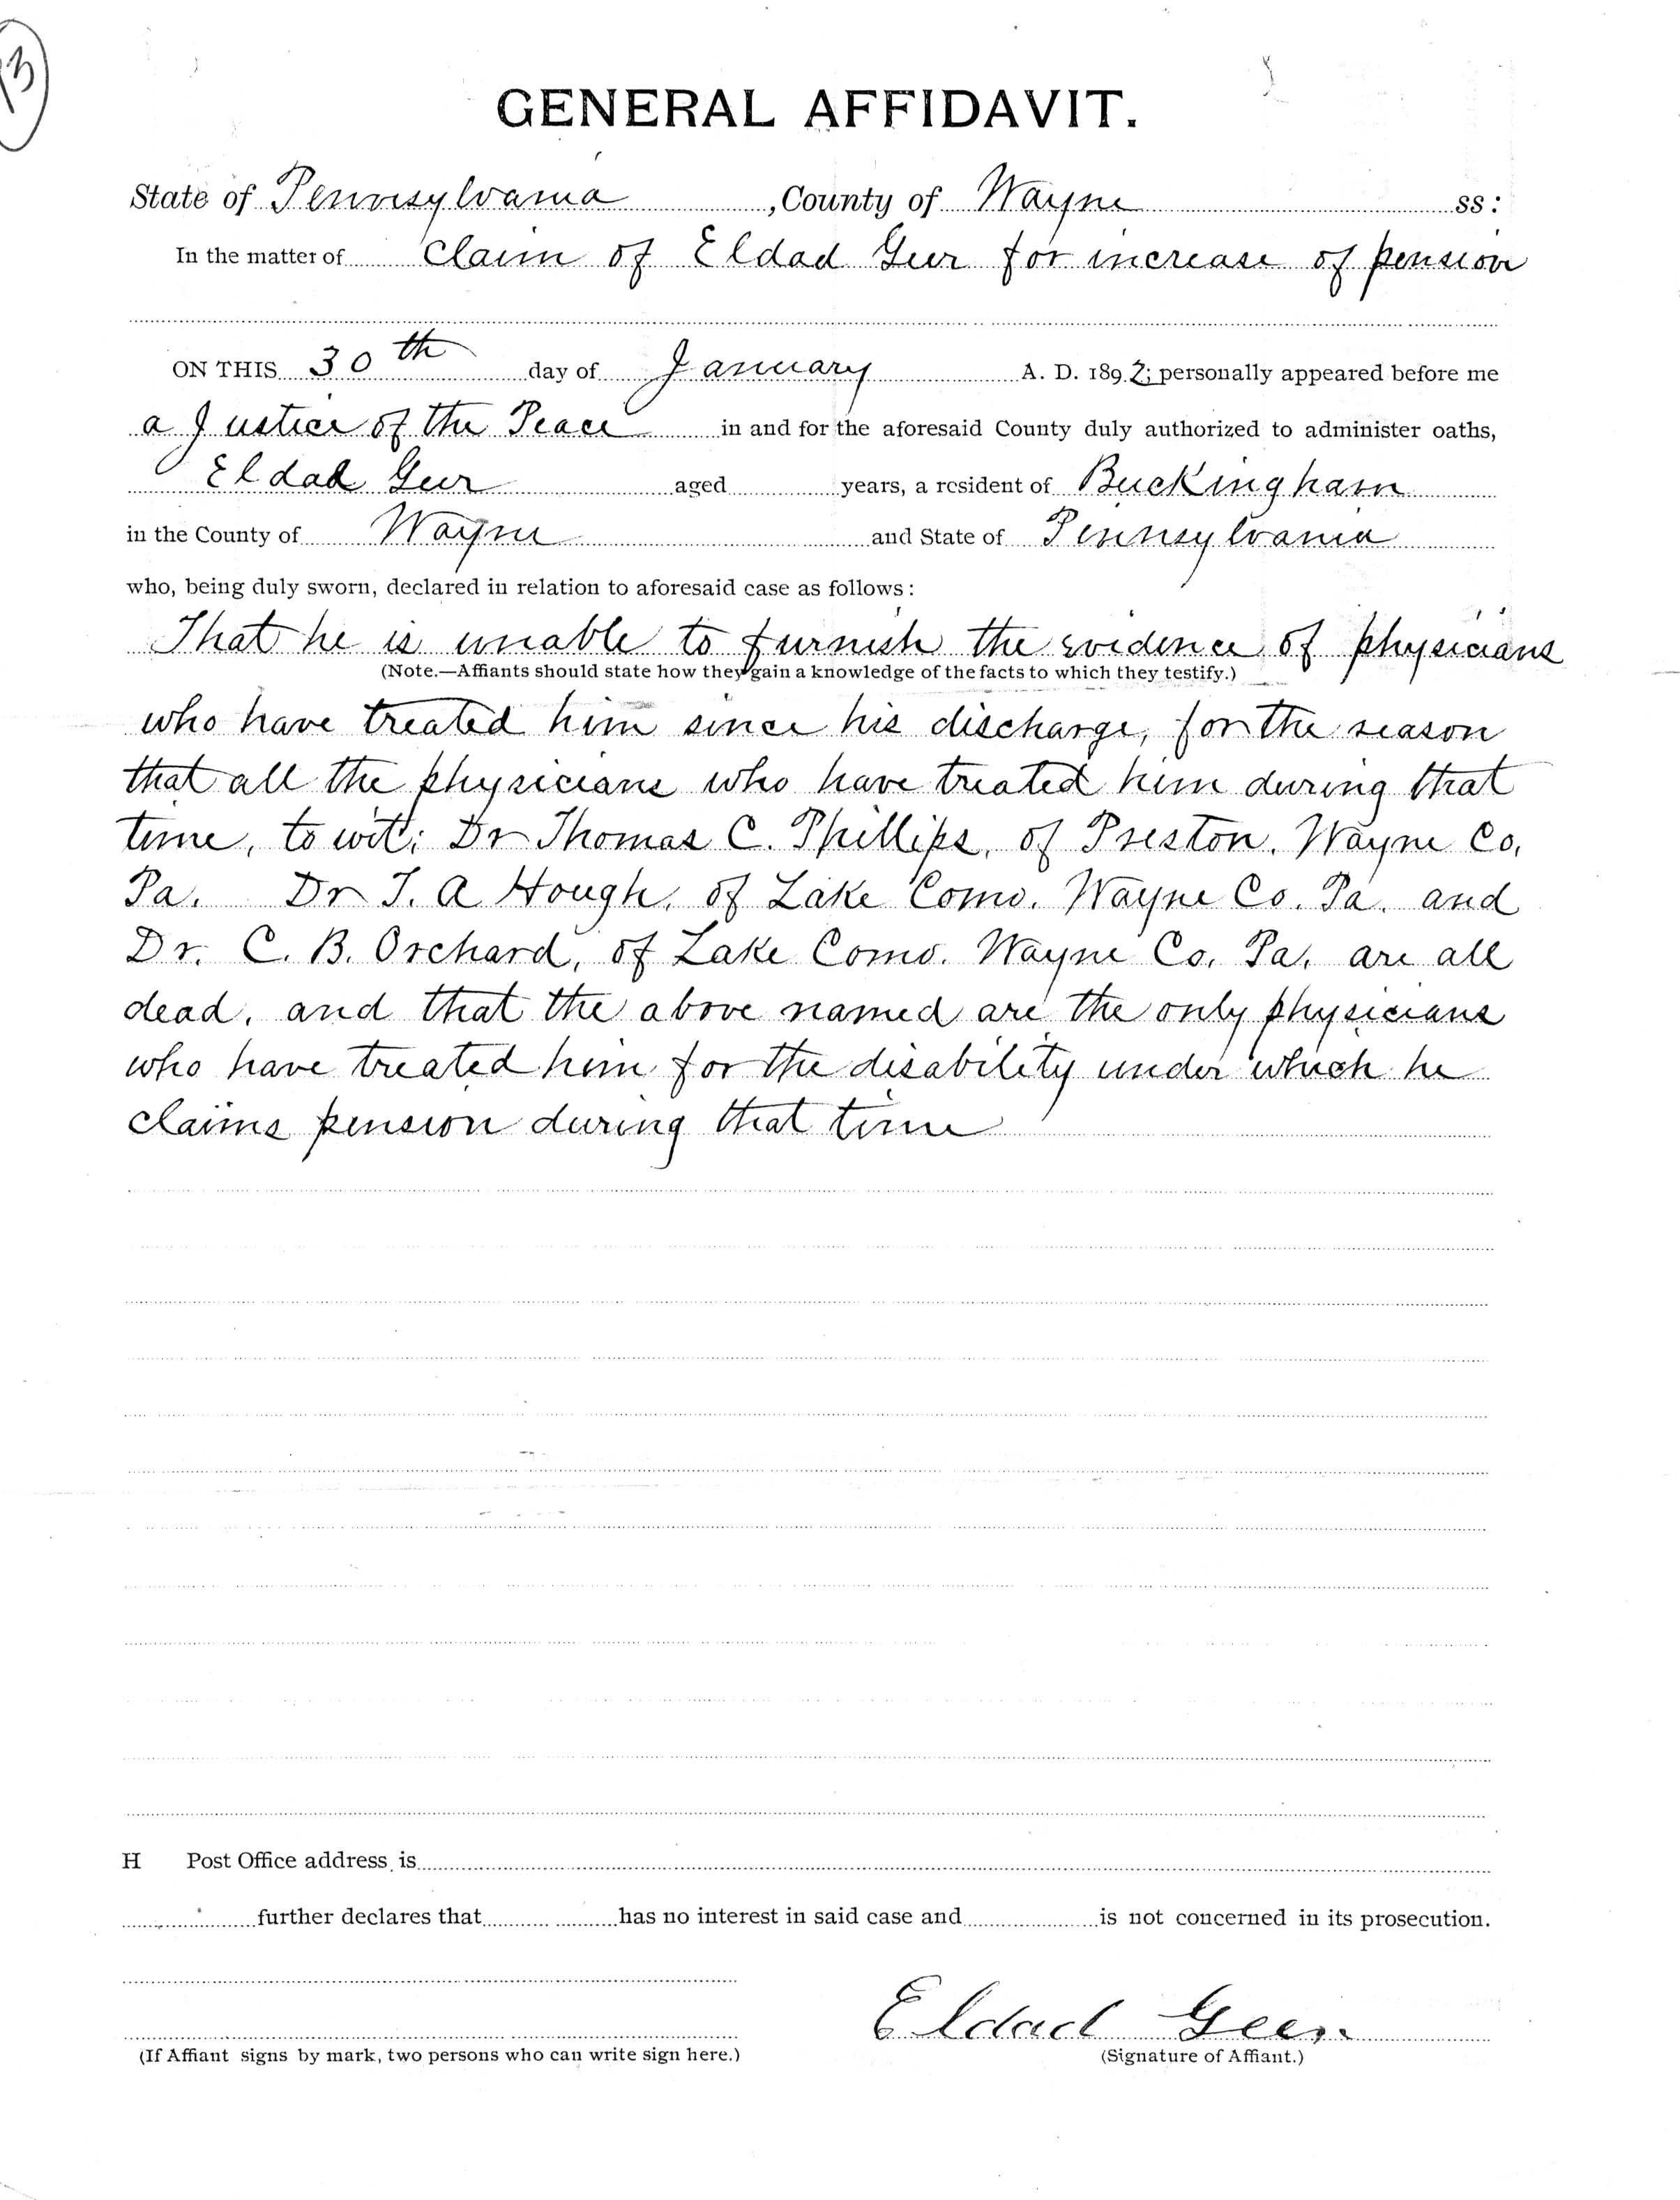 13
GENERAL AFFIDAVIT.
State of Pennsylvania, County of Wayne ss:
In the matter of claim of Eldad Geer for increase of pension
ON THIS 30th day of January A. D. 1892; personally appeared before me
a Justice of the Peace in and for the aforesaid County duly authorized to administer oaths,
Eldad Geer aged years, a resident of Buckingham
in the County of Wayne and State of Pennsylvania
who, being duly sworn, declared in relation to aforesaid case as follows:
That he is unable to furnish the evidence of physicians
(Note.—Affiants should state how they gain a knowledge of the facts to which they testify.)
who have treated him since his discharge, for the reason
that all the physicians who have treated him during that
time, to wit; Dr Thomas C. Phillips, of Preston, Wayne Co,
Pa. Dr T. A Hough, of Lake Como. Wayne Co. Pa. and
Dr. C. B. Orchard, of Lake Como. Wayne Co, Pa, are all
dead, and that the above named are the only physicians
who have treated him for the disability under which he
claims pension during that time
H Post Office address is
further declares that has no interest in said case and is not concerned in its prosecution.
Eldad Geer.
(If Affiant signs by mark, two persons who can write sign here.) (Signature of Affiant.)